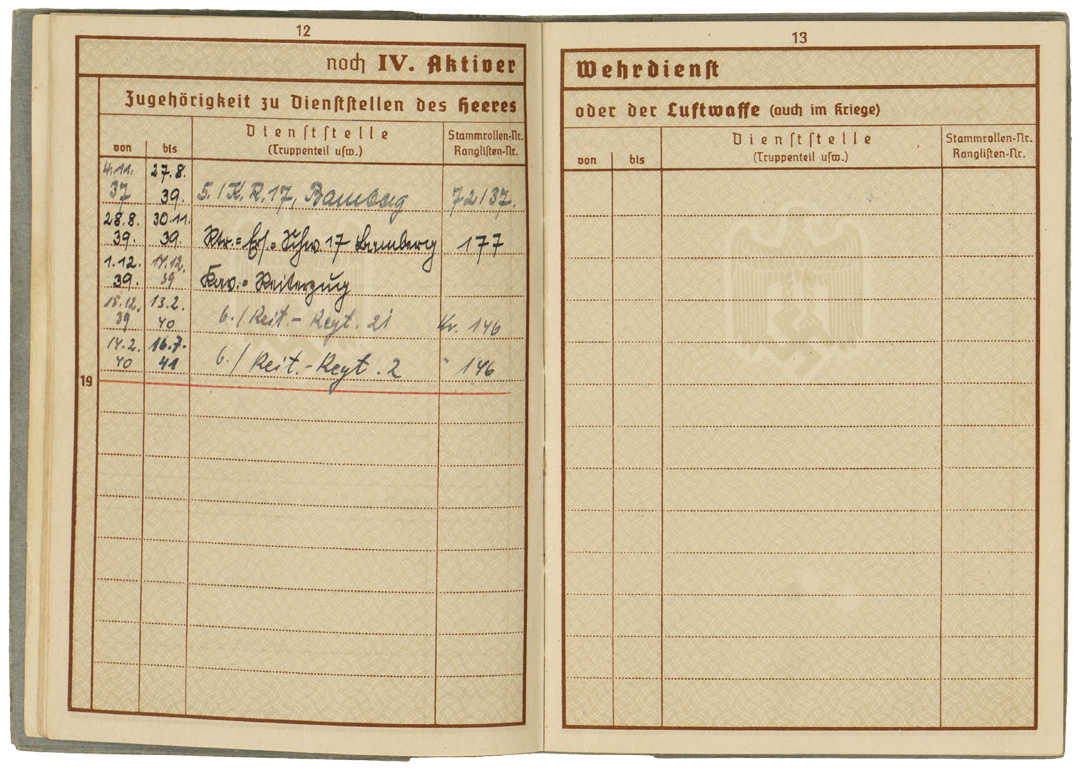 12
noch IV. Aktiver
Zugehörigkeit zu Dienststellen des Heeres
von
bis
Dienststelle
(Truppenteil usw.)
Stammrollen-Nr.
Ranglisten-Nr.
4.11. 37 27.8. 39. 5./K.R.17, Bamberg 72/37.
28.8. 39. 30.11. 39. Rtr.=Ers.=Schw. 17 Bamberg 177
1.12. 39. 17.12. 39 Kav.=Reiterzug
18.12. 39 13.2. 40 6./Reit.-Regt. 21 Kr. 146
14.2. 40 16.7. 41 6./Reit.-Regt. 2 " 146
19
13
Wehrdienst
oder der Luftwaffe (auch im Kriege)
von
bis
Dienststelle
(Truppenteil usw.)
Stammrollen-Nr.
Ranglisten-Nr.